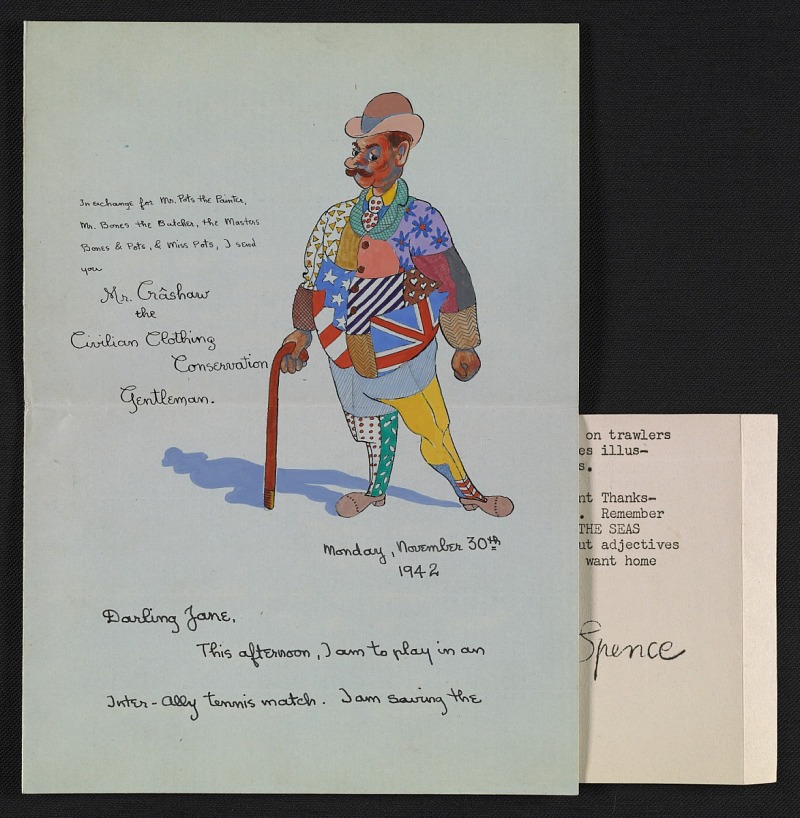 In exchange for Mr. Pots the Painter,
Mr. Bones the Butcher, the Masters
Bones & Pots, & Miss Pots, I send
you
Mr. Crâshaw
the
Civilian Clothing
Conservation
Gentleman.
Monday, November 30th
1942
Darling Jane,
This afternoon, I am to play in an
Inter-Ally tennis match. I am saving the
on trawlers
es illus-
s.
nt Thanks-
. Remember
THE SEAS
ut adjectives
want home
Spence